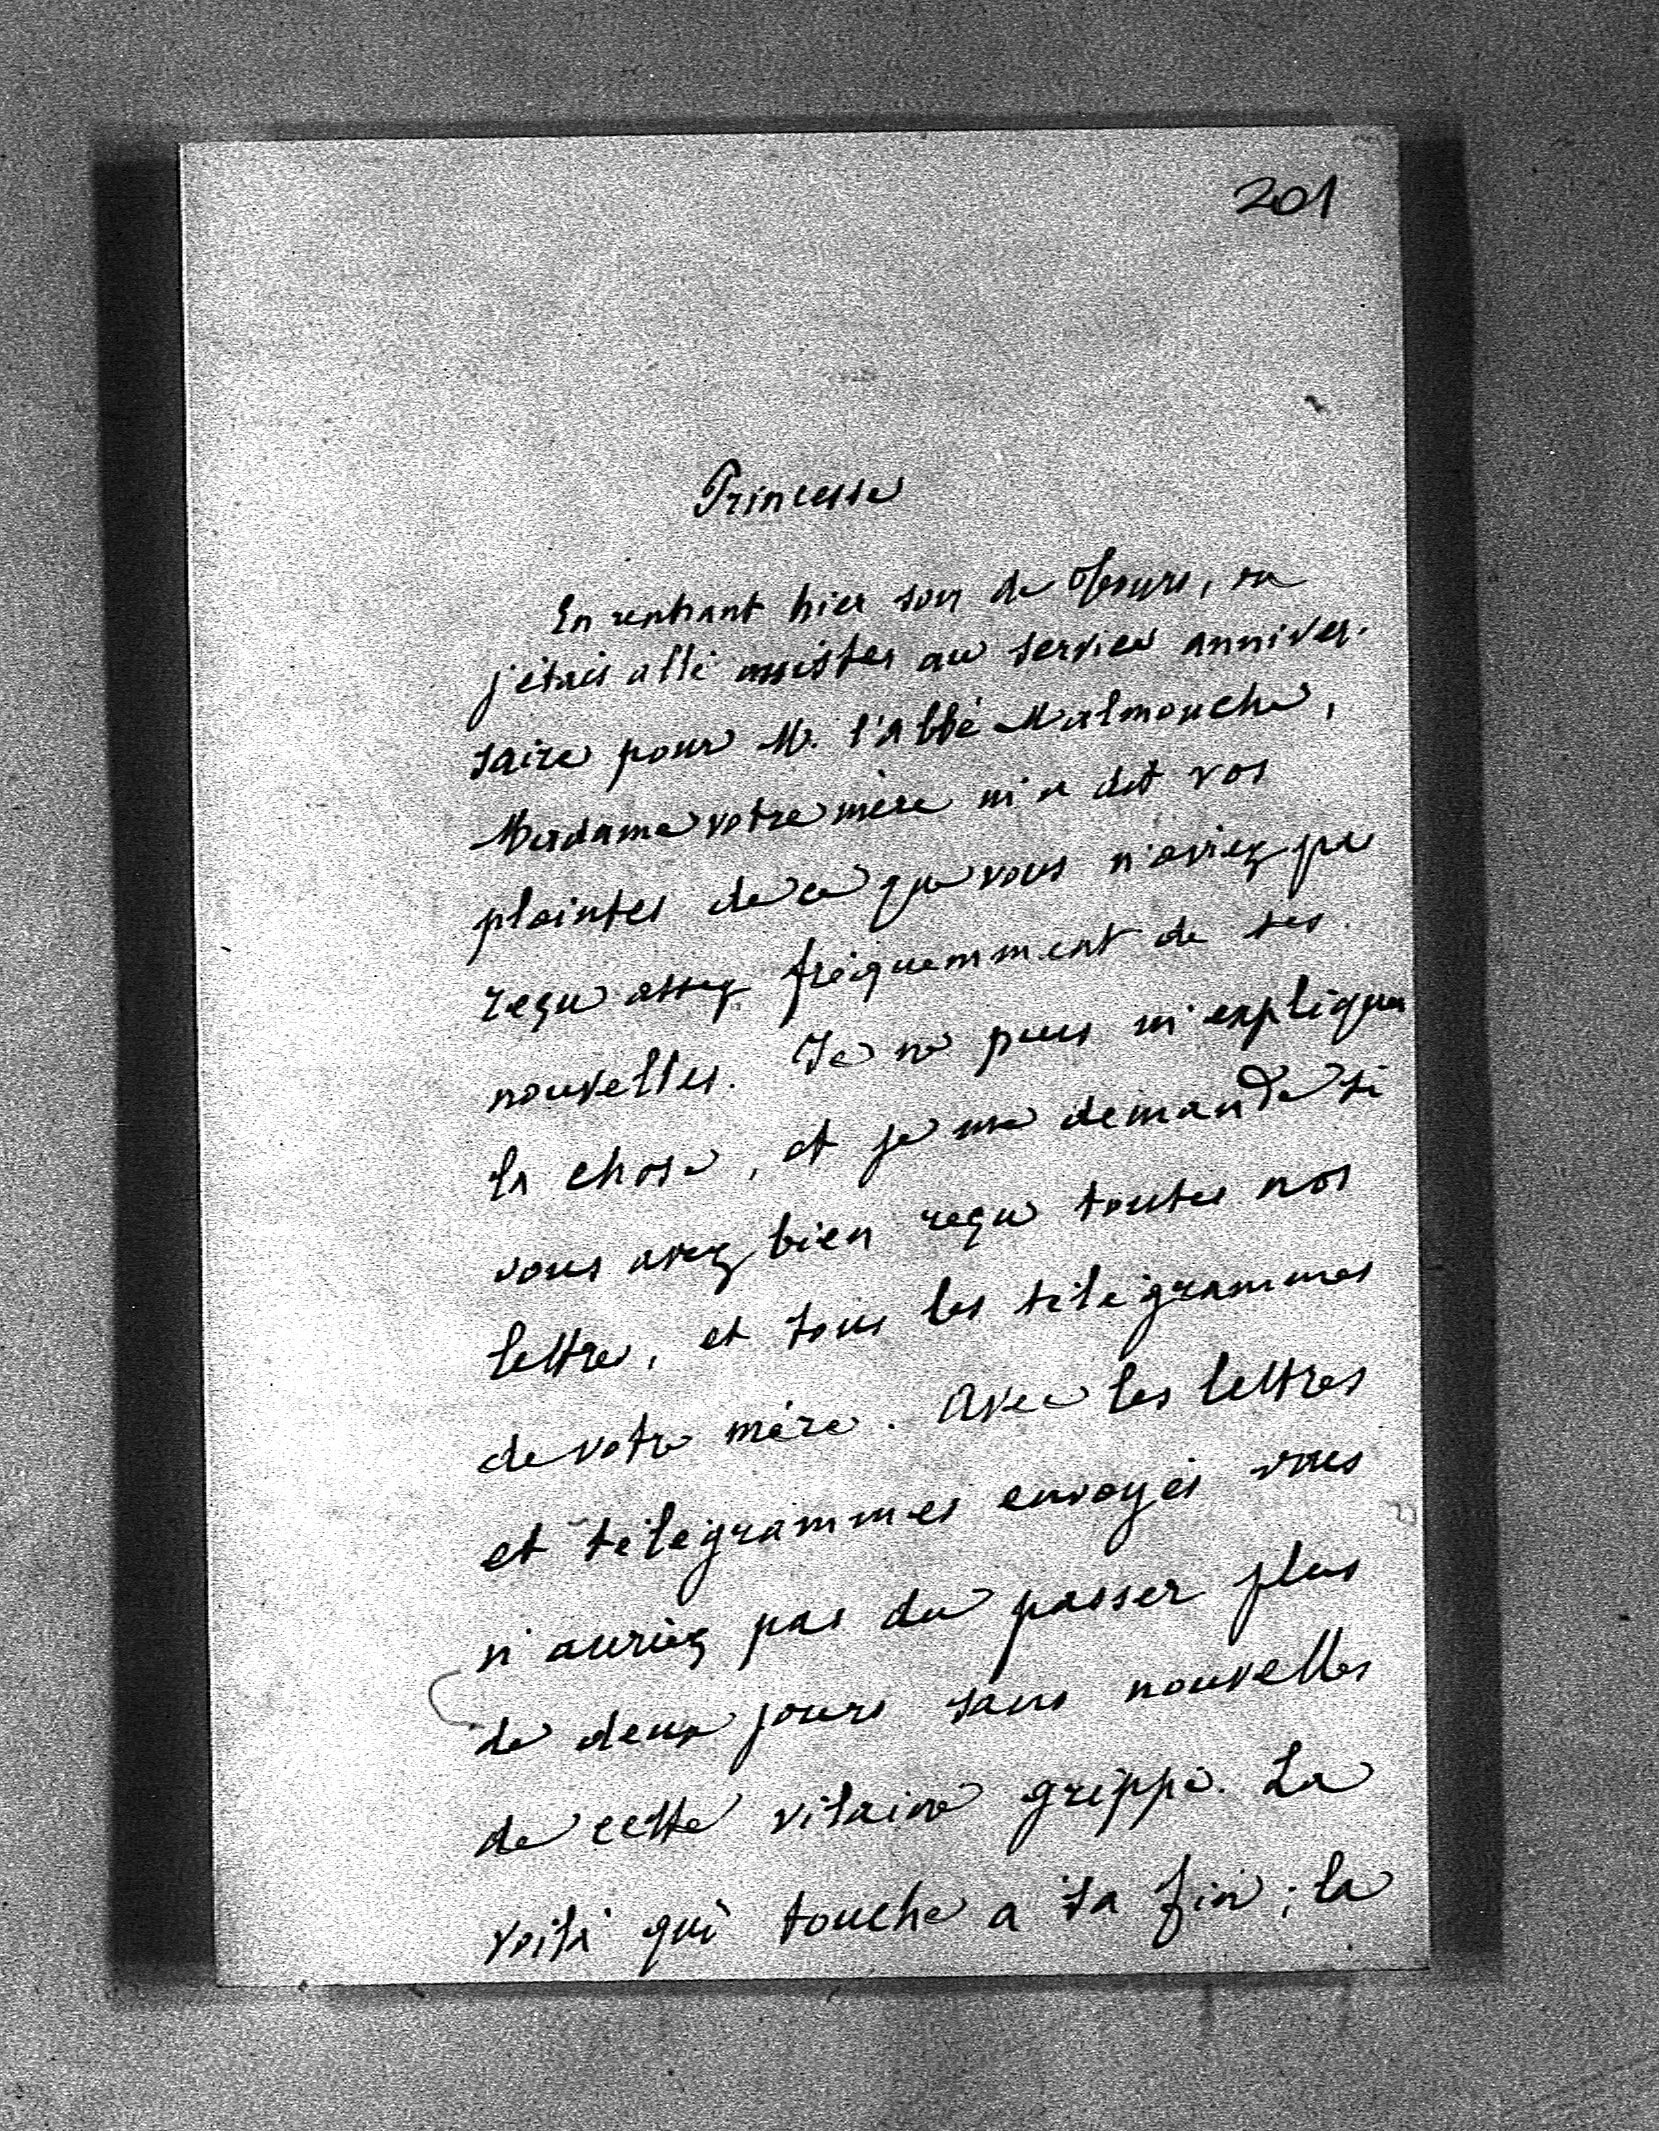 201
Princesse
En rentrant hier soir de Tours, où
j'étais allé assister au service anniver-
saire pour M. l'Abbé Malmouche,
Madame votre mère m'a dit vos
plaintes de ce que vous n'aviez pas
reçu assez fréquemment de ses
nouvelles. Je ne puis m'expliquer
la chose, et je me demande si
vous avez bien reçu toutes nos
lettres, et tous les télégrammes
de votre mère. Avec les lettres
et télégrammes envoyés vous
n'auriez pas du passer plus
de deux jours sans nouvelles
de cette vilaine grippe. La
voilà qui touche a sa fin ; la